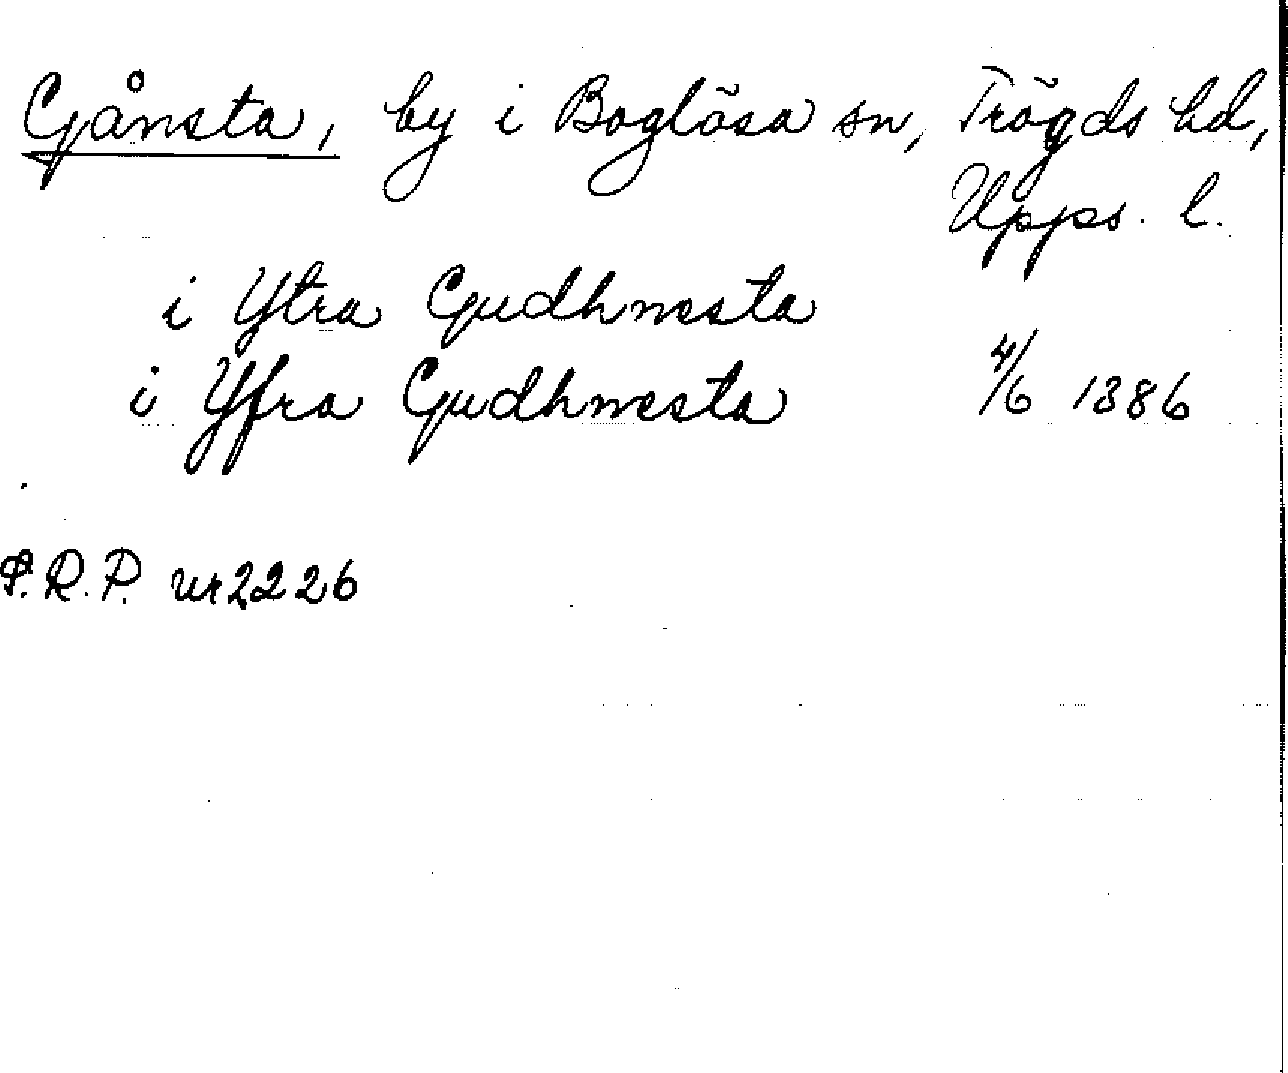 Gånsta, by i Boglösa sn, Trögds hd,
Upps. l.
i Ytra Gudhnesta
i Yfra Gudhnesta 4/6 1386
S.R.P. nr 2226